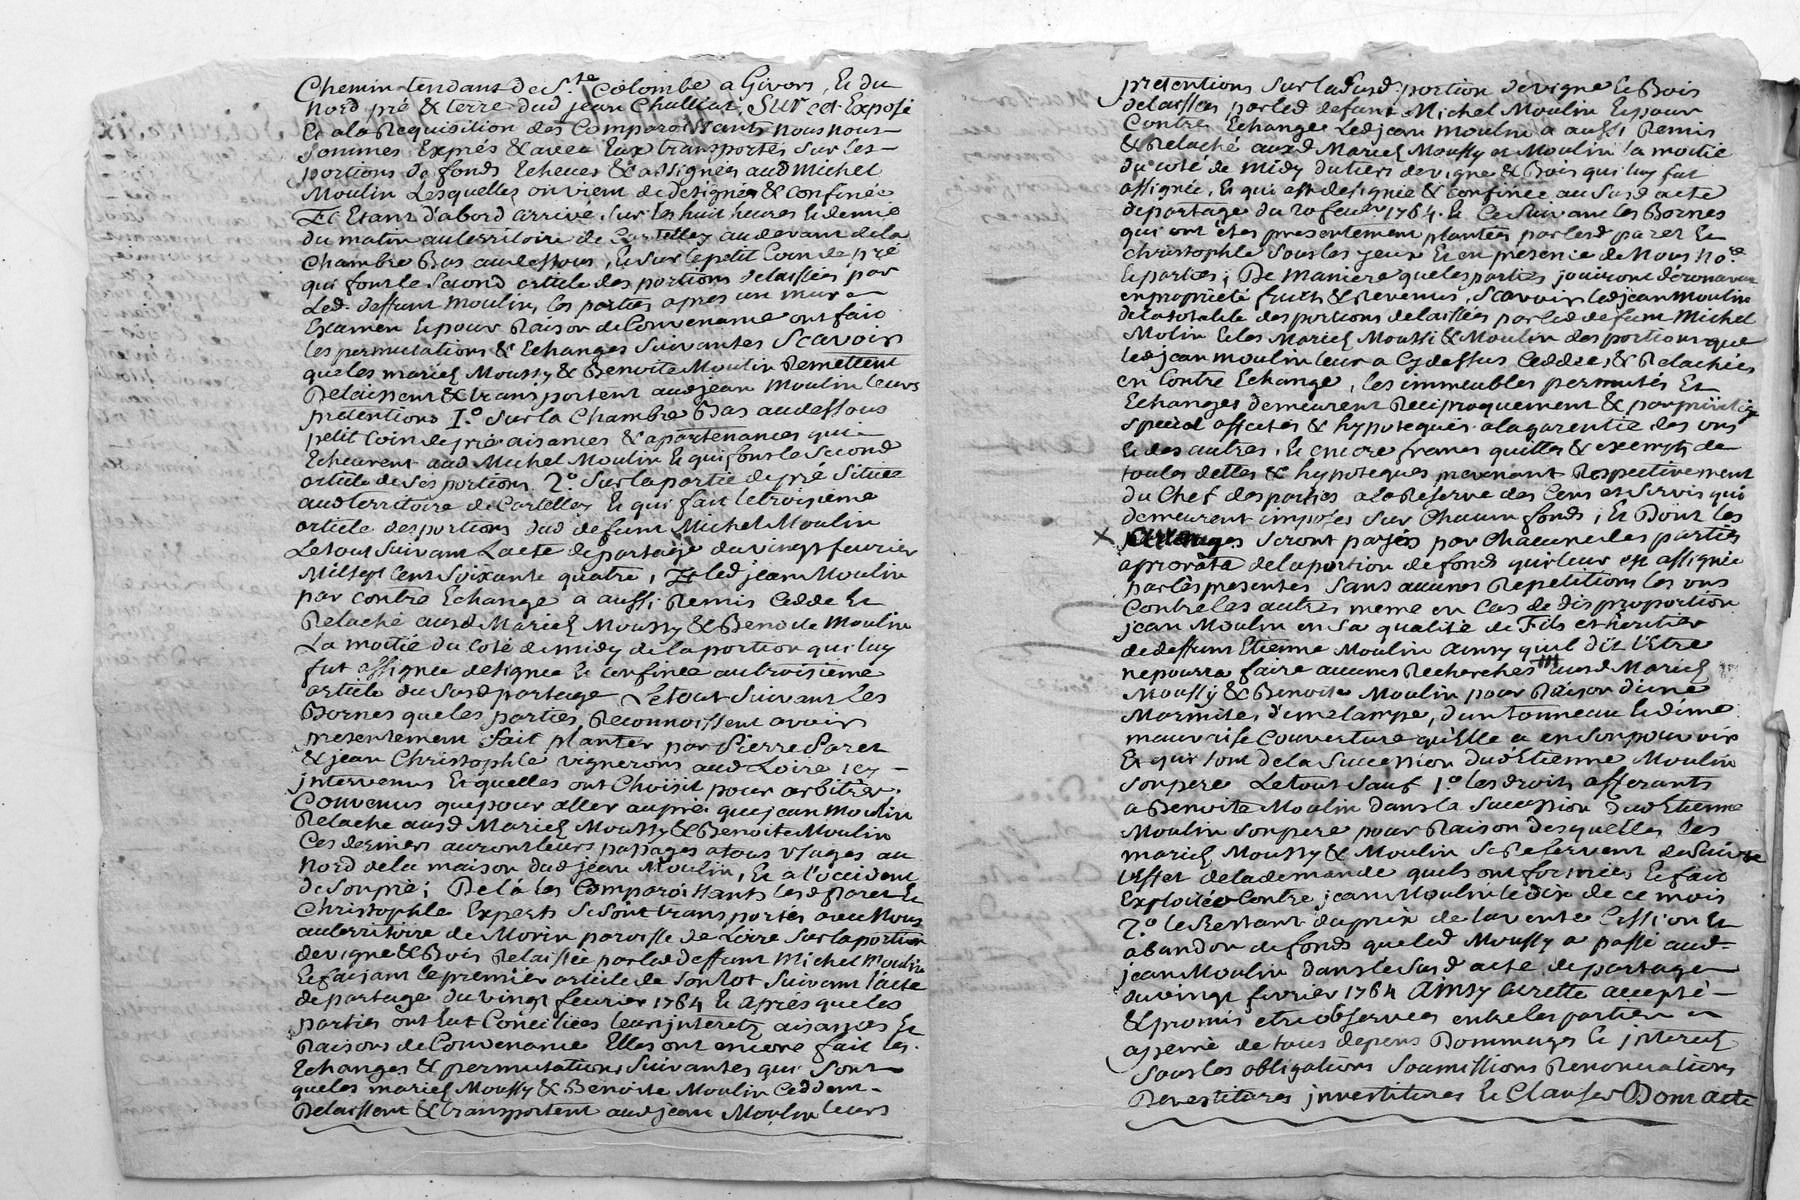 Chemin tendant de S.te Colombe a Givors, Et du
Nord pré & terre dud jean Challiat; Sur cet Exposé
Et ala Requisition des Comparoissants nous nous
sommes Exprés & avec Eux transportés sur les
portions de fonds Echeues & assignées aud Michel
Moulin Lesquelles on vient de designer & confinée
Et Etant d'abord arrivé, sur les huit heures Et demie
du matin au territoire de Cartelley au devant de la
Chambre Bas au dessous, Et sur le petit Coin de pré
qui font le Second article des portions delaissées par
Led. deffunt Moulin, les parties apres un mur
Examen Et pour Raison de Convenance ont fait
les permutations & Echanges Suivantes Scavoir
que les mariés Moussy & Benoite Moulin Remettent
Delaissent & transportent aud jean Moulin leurs
pretentions 1.° sur la Chambre Bas au dessous
petit Coin de pré aisances & apartenances qui
Echeurent aud Michel Moulin Et qui font le Second
article de ses portions 2.° Sur la partie de pré Située
aud territoire de Cartelley Et qui fait le troisieme
article des portions dud defunt Michel Moulin
Le tout Suivant L'acte de partage du vingt fevrier
Mil sept Cent Soixante quatre, Et led jean Moulin
par contre Echange a aussi Remis Cedde Et
Relaché ausd Mariés Moussy & Benoite Moulin
La moitié du Coté de midy de la portion qui luy
fut assignée designée Et Confinée au troisieme
article du Susd partage Le tout Suivant les
Bornes que les parties Reconnoissent avoir
presentement fait planter par Pierre Paret
& jean Christophle vignerons aud Loire icy
intervenus Et quelles ont Choisit pour arbitres,
Convenus que pour aller au pré que jean Moulin
Relache ausd Mariés Moussy & Benoite Moulin
Ces derniers auront leurs passages a tous Usages au
Nord de la maison dud jean Moulin, Et a l'occident
de Son pré; De là les Comparoissants lesd Paret Et
Christophle Experts Se sont transportés avec Nous
au territoire de Morin paroisse de Loire Sur la portion
de vigne & Bois delaissée par led deffunt Michel Moulin
Et faisant le premier article de Son lot Suivant l'acte
de partage du vingt fevrier 1764 Et aprés que les
parties ont Eut Conciliées leurs interets aisances Et
Raisons de Convenance Elles ont encore fait les
Echanges & permutations Suivantes qui Sont
que les mariés Moussy & Benoite Moulin Ceddent
Delaissent & transportent aud jean Moulin leurs
pretentions Sur la Susd portion de vigne Et Bois
delaissées par led defunt Michel Moulin Et pour
Contre Echange Led jean Moulin a aussi Remis
& Relaché ausd Mariés Moussy et Moulin la moitié
du coté de midy du tiers de vigne & Bois qui luy fut
assignée, Et qui est designée & Confinée au Susd acte
de partage du 20 fevrier 1764. Et Ce Suivant les Bornes
qui ont étés presentement plantées par lesd paret Et
christophle Sous les yeux Et en presence de Nous no.re
Et parties; De maniere que les parties jouiront déronavant
en propriété fruits & Revenus, Scavoir led jean Moulin
de la totalité des portions delaissées par led defunt Michel
Molin Et les Mariés Moussi & Moulin des portions que
led jean moulin leur a Cy dessus Ceddées, & Relachées
en Contre Echange, les immeubles permutés Et
Echanges demeurent Reciproquement & par privilege
Special affectés & hypotequés a la garentie des uns
Et des autres, Et encore francs quittes & exempts de
toutes dettes & hypoteques provenant Respectivement
du Chef des parties a la Reserve des Cens et Servis qui
demeurent imposés Sur Chacun fonds, Et Dont les
x arrerages Seront payés par Chacune des parties
a prorata de la portion de fonds qui leur est assignée
par les presentes Sans aucunes Repetitions les uns
Contre les autres meme en Cas de disproportion
jean Moulin en Sa qualité de Fils et heritier
de deffunt Etienne Moulin ainsy quil dit L'Etre
ne pourra faire aucunes Recherches ausd Mariés
Moussy & Benoite Moulin pour Raison d'une
Marmite, d'une lampe, d'un tonneau Et d'une
mauvaise Couverture qu'Elle a en Son pouvoir
Et qui sont de la Succession dud Etienne Moulin
Son pere Le tout Sauf 1.° les droits afferants
a Benoite Moulin dans la Succession dud Etienne
Moulin Son pere pour Raison desquelles les
mariés Moussy & Moulin Se Reservent de Suivre
l'Effet de la demande quils ont formées Et fait
Exploitée Contre jean Moulin le dix de ce mois
2.° le Restant du prix de la vente Cession Et
abandon de fonds que led Moussy a passé aud
jean Moulin dans le Susd acte de partage
du vingt fevrier 1764 Ainsy arretté accepté
& promis etre observée entre les parties a
a peine de tous depens Dommages Et interets
Sous les obligations Soumissions Renonciations
Devestitures investitures Et Clauses Dont acte